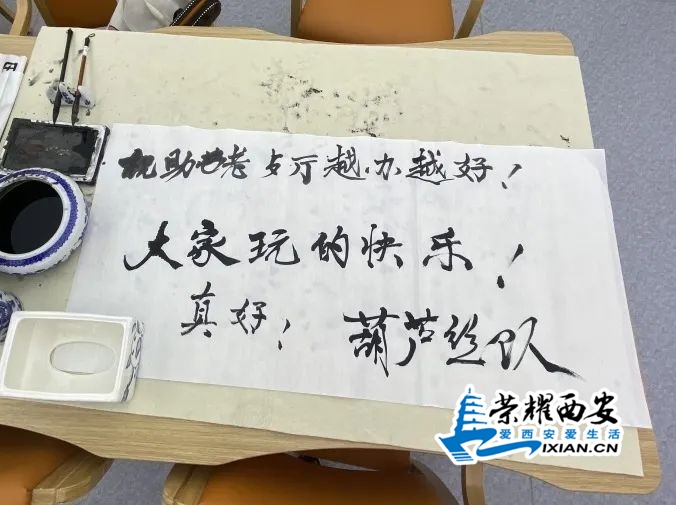 祝助老歺厅越办越好！
大家玩的快乐！
真好！ 葫芦丝队
荣耀西安
爱西安爱生活
IXIAN.CN